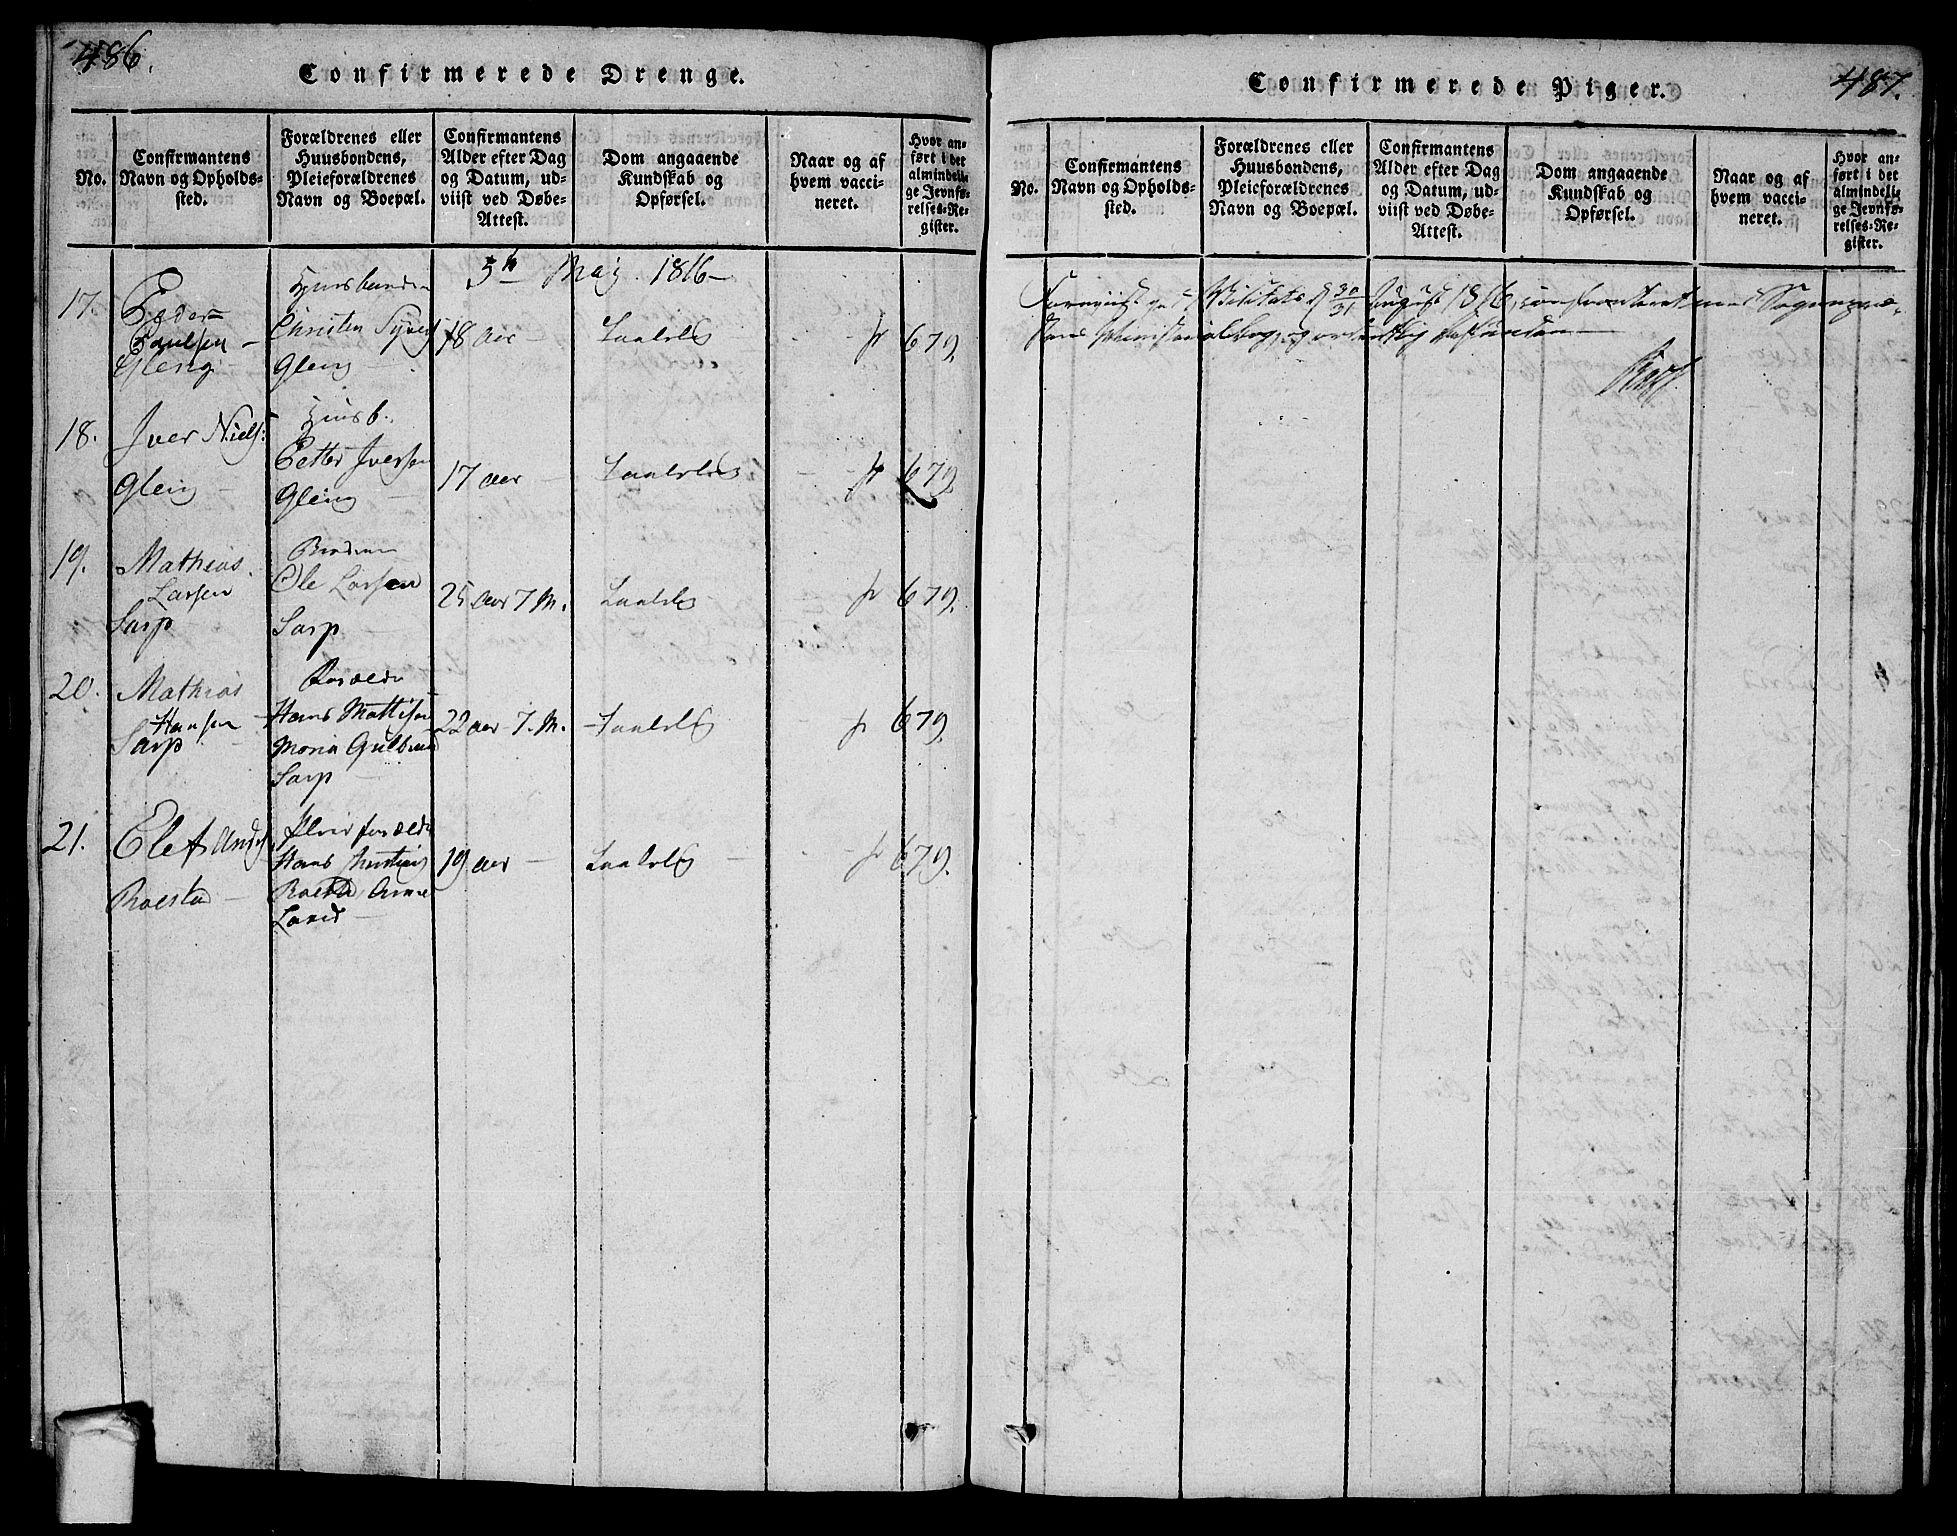 486.
Confirmerede Drenge.
No.
Confirmantens
Navn og Opholds-
sted.
Forældrenes eller
Huusbondens,
Pleieforældrenes
Navn og Boepæl.
Confirmantens
Alder efter Dag
og Datum, ud-
viist ved Døbe-
Attest.
Dom angaaende
Kundskab og
Opførsel.
Naar og af
hvem vacci-
neret.
Hvor an-
ført i det
almindeli-
ge Jevnfø-
relses-Re-
gister.
5te Maj 1816 —
17.
Peder
Poulsen —
Gleng —
Huusbonden
Christen
Gleng —
18 aar —
p 679.
18.
Iver Niels:
Gleng —
Huusb.
Petter Iversen
Gleng —
17 aar —
p 679.
19.
Mathias
Larsen
Sarp —
Broderen
Ole Larsen
Sarp —
25 aar 7 M.
p 679.
20.
Mathias
Hansen
Sarp —
Forældre
Hans Mattisen
Maria Gulbrand
Sarp —
22 aar 7. M.
p 679.
21.
Elef Anders
Roestad —
Pleieforældre
Hans
Anne
19 aar —
p 679.
487.
Confirmerede Piger.
No.
Confirmantens
Navn og Opholds-
sted.
Forældrenes eller
Huusbondens,
Pleieforældrenes
Navn og Boepæl.
Confirmantens
Alder efter Dag
og Datum, ud-
viist ved Døbe-
Attest.
Dom angaaende
Kundskab og
Opførsel.
Naar og af
hvem vacci-
neret.
Hvor an-
ført i det
almindelig-
ge Jevnfø-
relses-Re-
gister.
Foreviist Visitats 30/31 August 1816, confronteret med Sognepræ-
stens Ministerialbog, og